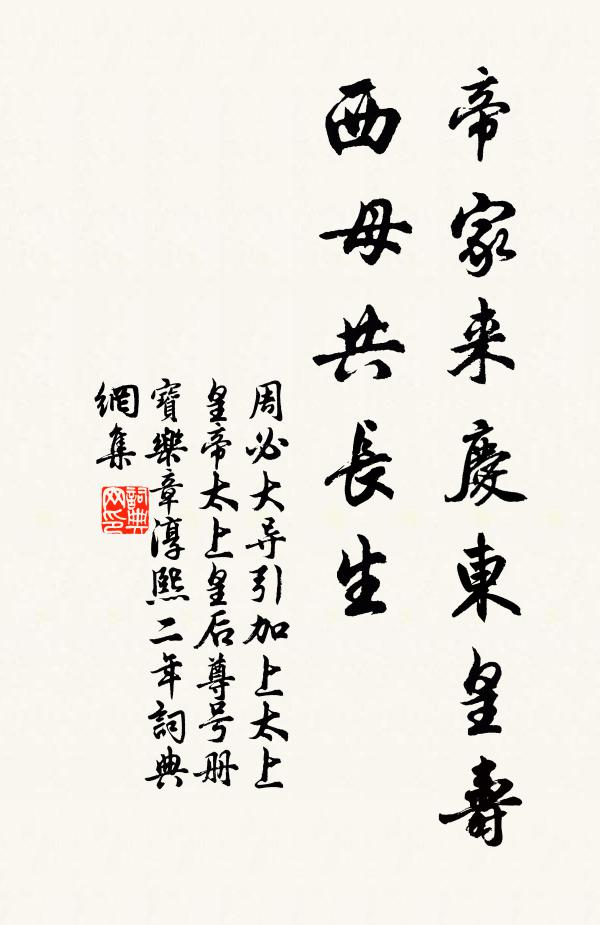 帝家来慶東皇壽
西母共長生
周必大导引加上太上
皇帝太上皇后尊号册
寶樂章淳熙二年詞典
網集
詞典
网印